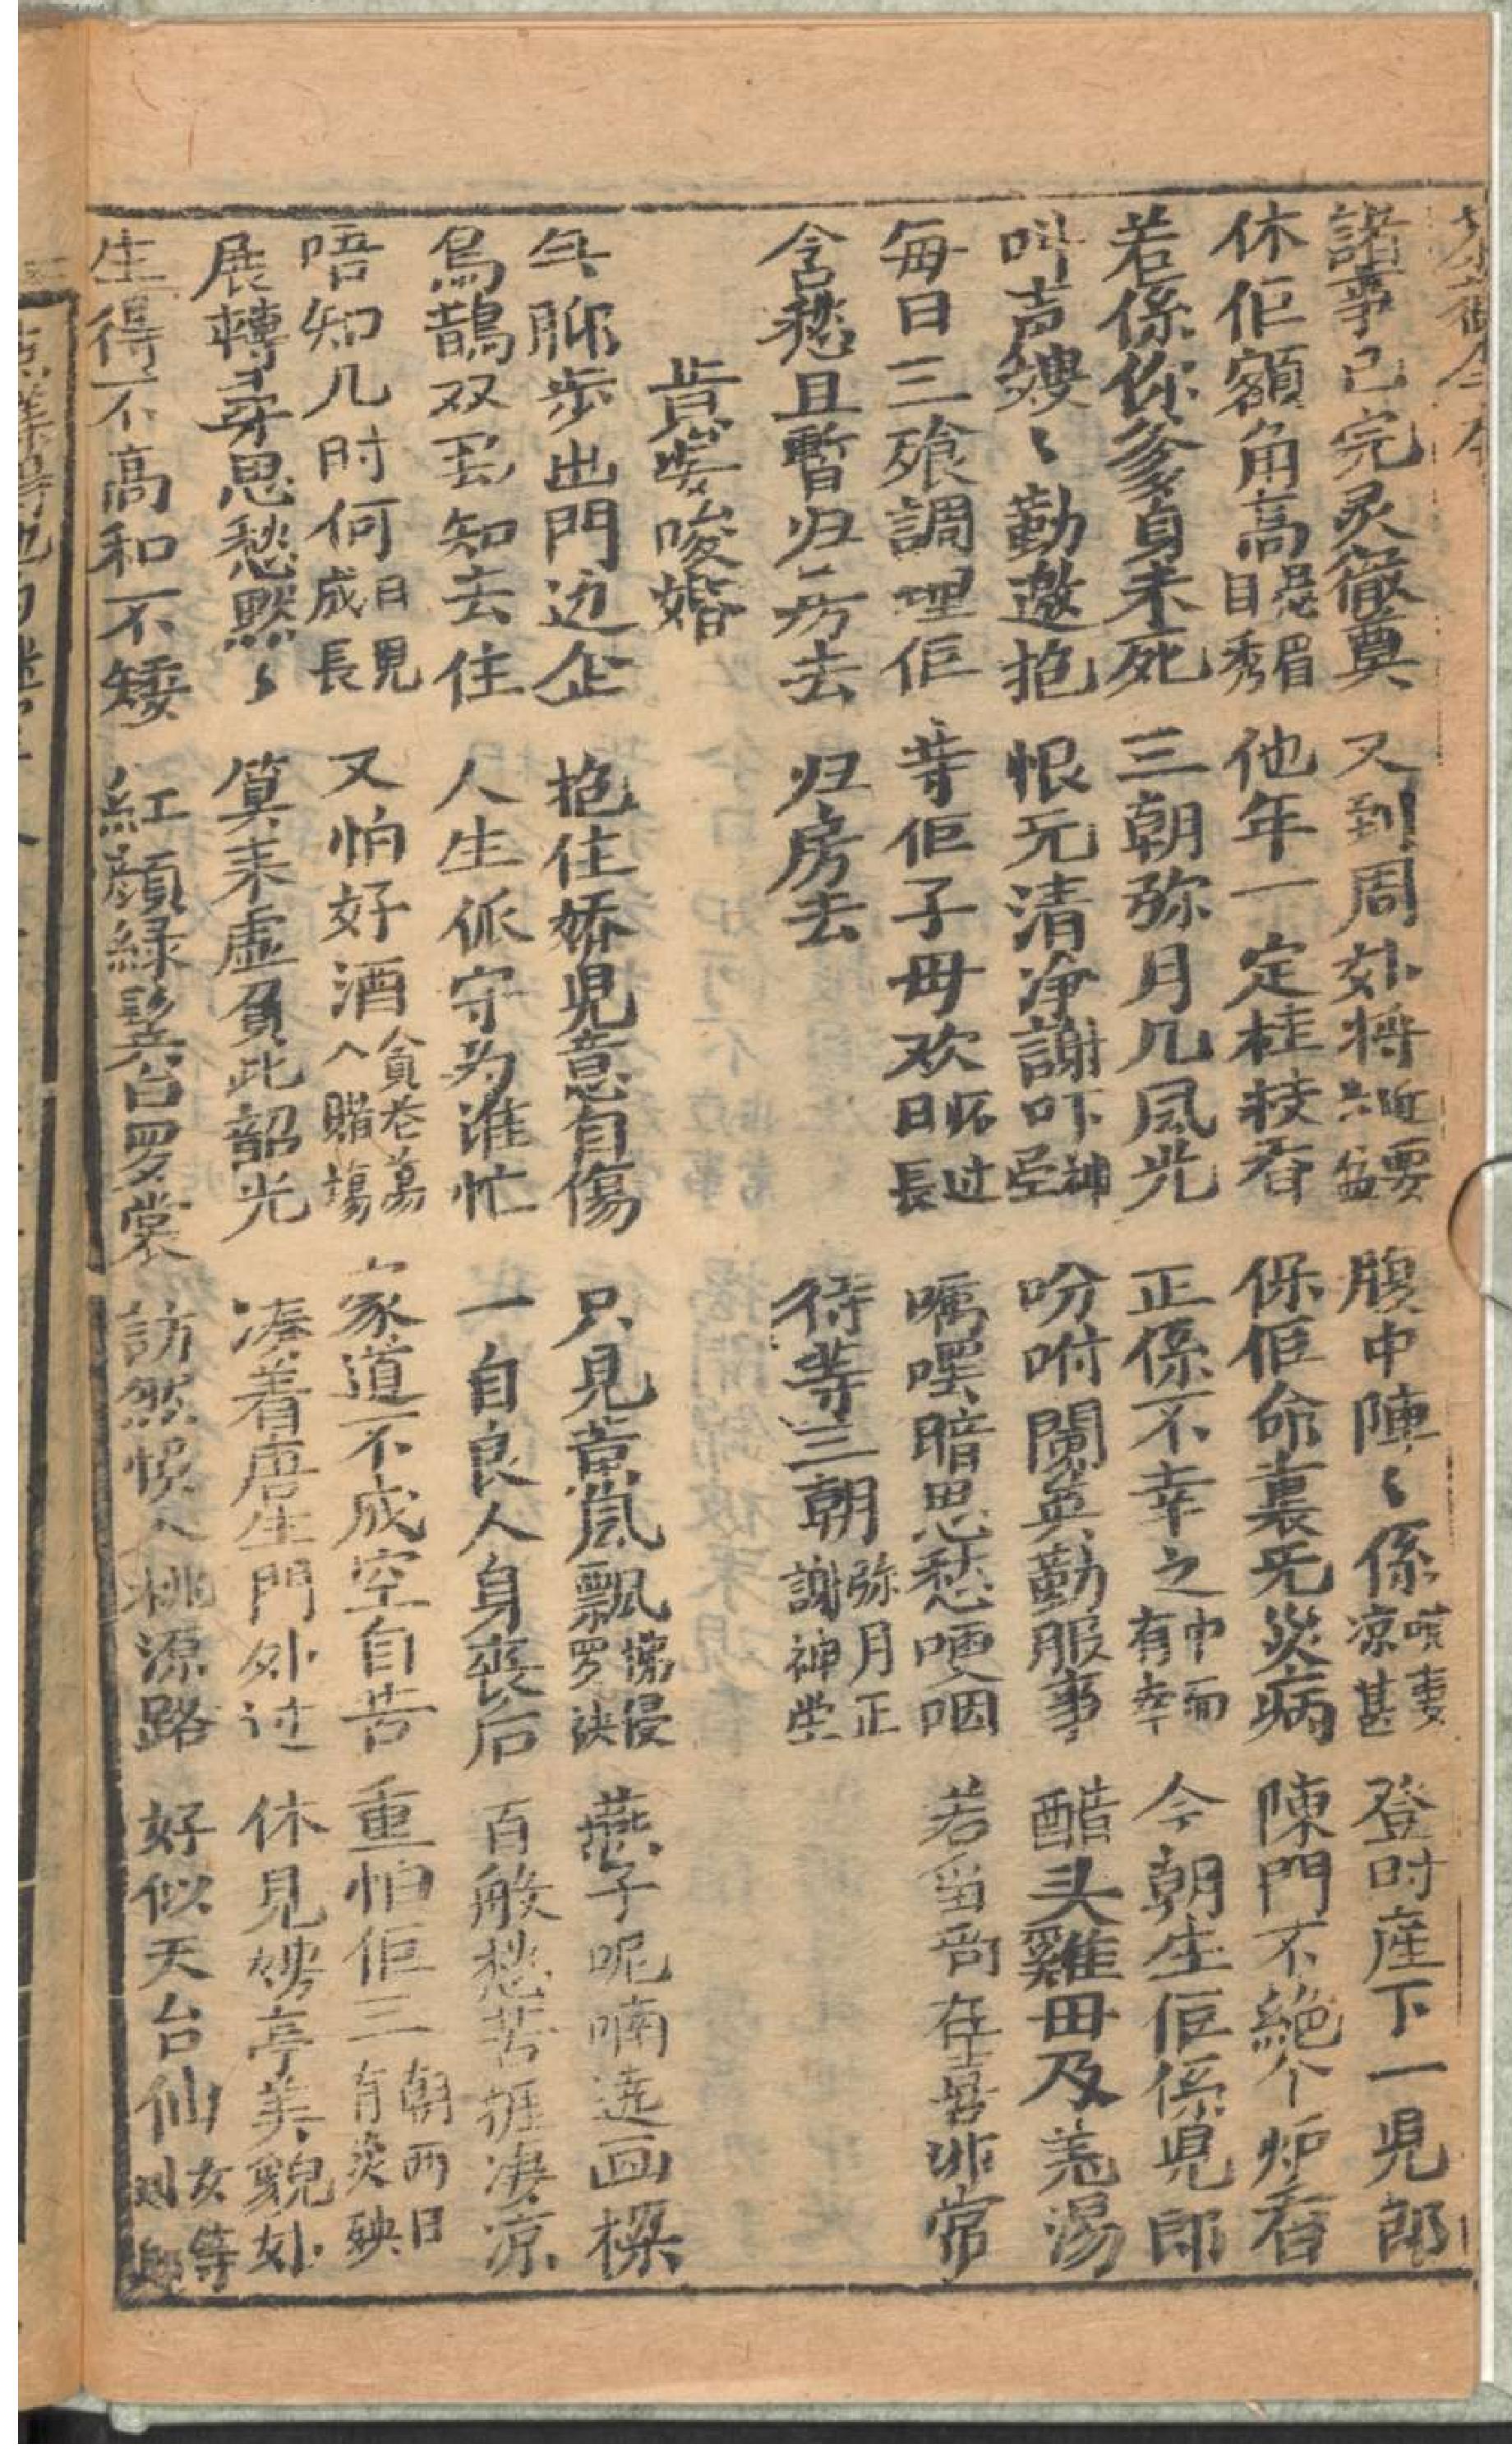 諸事已完灵徹奠 又到周㚈将近要六盆 腹中陣〻係咳凄凉甚 登时産下一児郎
休佢額角高昂眉目秀 他年一定桂枝香 保佢命裏无災病 陳門不絶个炉香
若係你爹身未死 三朝弥月几風光 正係不幸之中而有幸 今朝生佢係児郎
叫声嫂〻勤邀抱 恨冗清净謝吓神 吩咐闌英勤服事 醋头雞毌及羌湯
每日三飱調理佢 等佢子毋欢怀过日長 嘱嘿暗思愁哽咽 若留尚在喜非常
含愁且暫归房去 归房去 待等三朝弥月正謝神堂
肯安唆婚
午聊步出門边企 抱住嬌児意自傷 只見黄風飘 侵罗 燕子呢喃遶画樑
烏鵲双飞知去住 人生派守为准忙 一自良人身喪后 百般愁苦捱凄凉
唔知几时何日見成長 又怕好酒貪花入賭塲 家道不成空自告 重怕佢三朝両日有災殃
展轉尋思愁默〻 算来虚負此韶光 凑着唐生門外过 休見娉亭美貌㚈
生得不高和不矮 紅顔緑髪台罗裳 訪然悞入桃源路 好似天台仙女等